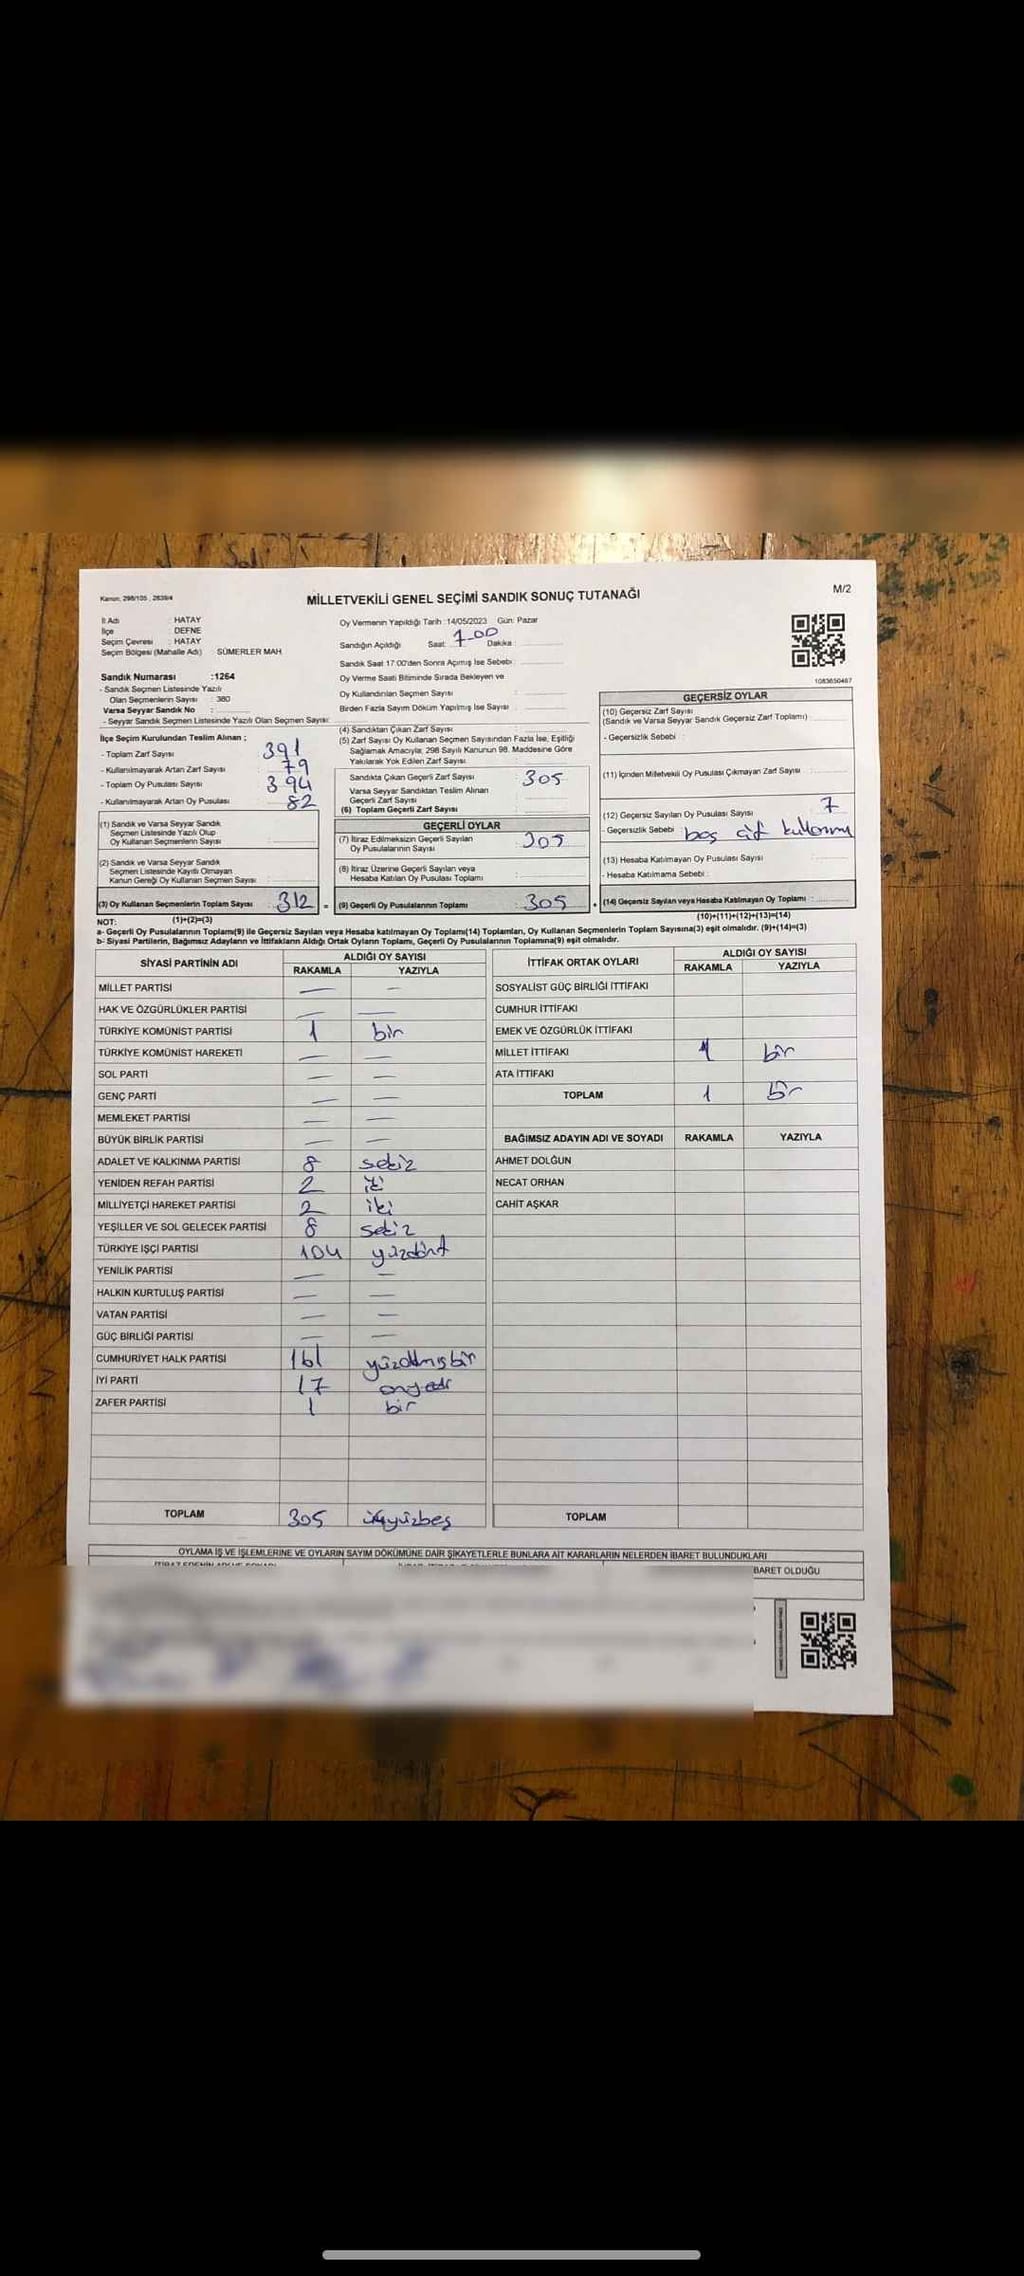 Kanun, 298/105 , 2839/4
MİLLETVEKİLİ GENEL SEÇİMİ SANDIK SONUÇ TUTANAĞI
M/2
İl Adı : HATAY
İlçe : DEFNE
Seçim Çevresi : HATAY
Seçim Bölgesi (Mahalle Adı) : SÜMERLER MAH
Sandık Numarası :1264
- Sandık Seçmen Listesinde Yazılı
Olan Seçmenlerin Sayısı : 380
Varsa Seyyar Sandık No :
- Seyyar Sandık Seçmen Listesinde Yazılı Olan Seçmen Sayısı:
Oy Vermenin Yapıldığı Tarih :14/05/2023 Gün: Pazar
Sandığın Açıldığı Saat: 7.00 Dakika :
Sandık Saat 17:00'den Sonra Açmış İse Sebebi :
Oy Verme Saati Bitiminde Sırada Bekleyen ve
Oy Kullandırılan Seçmen Sayısı :
Birden Fazla Sayım Döküm Yapılmış İse Sayısı :
1083650467
İlçe Seçim Kurulundan Teslim Alınan ;
- Toplam Zarf Sayısı : 391
- Kullanılmayarak Artan Zarf Sayısı : 79
- Toplam Oy Pusulası Sayısı : 394
- Kullanılmayarak Artan Oy Pusulası : 82
(1) Sandık ve Varsa Seyyar Sandık
Seçmen Listesinde Yazılı Olup
Oy Kullanan Seçmen Sayısı :
(2) Sandık ve Varsa Seyyar Sandık
Seçmen Listesinde Kayıtlı Olmayan
Kanun Gereği Oy Kullanan Seçmen Sayısı :
(3) Oy Kullanan Seçmenlerin Toplam Sayısı : 312 =
(4) Sandıktan Çıkan Zarf Sayısı :
(5) Zarf Sayısı Oy Kullanan Seçmen Sayısından Fazla İse, Eşitliği
Sağlamak Amacıyla; 298 Sayılı Kanunun 98. Maddesine Göre
Yakılarak Yok Edilen Zarf Sayısı :
Sandıkta Çıkan Geçerli Zarf Sayısı : 305
Varsa Seyyar Sandıktan Teslim Alınan
Geçerli Zarf Sayısı :
(6) Toplam Geçerli Zarf Sayısı :
GEÇERLİ OYLAR
(7) İtiraz Edilmeksizin Geçerli Sayılan
Oy Pusulalarının Sayısı : 305
(8) İtiraz Üzerine Geçerli Sayılan veya
Hesaba Katılan Oy Pusulası Toplamı :
(9) Geçerli Oy Pusulalarının Toplamı : 305 +
GEÇERSİZ OYLAR
(10) Geçersiz Zarf Sayısı
(Sandık ve Varsa Seyyar Sandık Geçersiz Zarf Toplamı) :
- Geçersizlik Sebebi :
(11) İçinden Milletvekili Oy Pusulası Çıkmayan Zarf Sayısı :
(12) Geçersiz Sayılan Oy Pusulası Sayısı : 7
- Geçersizlik Sebebi : boş çift kullanım
(13) Hesaba Katılmayan Oy Pusulası Sayısı :
- Hesaba Katılmama Sebebi :
(14) Geçersiz Sayılan veya Hesaba Katılmayan Oy Toplamı :
NOT: (1)+(2)=(3)
(10)+(11)+(12)+(13)=(14)
a- Geçerli Oy Pusulalarının Toplamı(9) ile Geçersiz Sayılan veya Hesaba katılmayan Oy Toplamı(14) Toplamları, Oy Kullanan Seçmenlerin Toplam Sayısına(3) eşit olmalıdır. (9)+(14)=(3)
b- Siyasi Partilerin, Bağımsız Adayların ve İttifakların Aldığı Ortak Oyların Toplamı, Geçerli Oy Pusulalarının Toplamına(9) eşit olmalıdır.
SİYASİ PARTİNİN ADI ALDIĞI OY SAYISI
RAKAMLA YAZIYLA
MİLLET PARTİSİ — —
HAK VE ÖZGÜRLÜKLER PARTİSİ — —
TÜRKİYE KOMÜNİST PARTİSİ 1 bir
TÜRKİYE KOMÜNİST HAREKETİ — —
SOL PARTİ — —
GENÇ PARTİ — —
MEMLEKET PARTİSİ — —
BÜYÜK BİRLİK PARTİSİ — —
ADALET VE KALKINMA PARTİSİ 8 sekiz
YENİDEN REFAH PARTİSİ 2 iki
MİLLİYETÇİ HAREKET PARTİSİ 2 iki
YEŞİLLER VE SOL GELECEK PARTİSİ 8 sekiz
TÜRKİYE İŞÇİ PARTİSİ 104 yüzdört
YENİLİK PARTİSİ — —
HALKIN KURTULUŞ PARTİSİ — —
VATAN PARTİSİ — —
GÜÇ BİRLİĞİ PARTİSİ — —
CUMHURİYET HALK PARTİSİ 161 yüzaltmışbir
İYİ PARTİ 17 onyedi
ZAFER PARTİSİ 1 bir
TOPLAM 305 üçyüzbeş
İTTİFAK ORTAK OYLARI ALDIĞI OY SAYISI
RAKAMLA YAZIYLA
SOSYALİST GÜÇ BİRLİĞİ İTTİFAKI
CUMHUR İTTİFAKI
EMEK VE ÖZGÜRLÜK İTTİFAKI
MİLLET İTTİFAKI 1 bir
ATA İTTİFAKI
TOPLAM 1 bir
BAĞIMSIZ ADAYIN ADI VE SOYADI RAKAMLA YAZIYLA
AHMET DOLĞUN
NECAT ORHAN
CAHİT AŞKAR
TOPLAM
OYLAMA İŞ VE İŞLEMLERİNE VE OYLARIN SAYIM DÖKÜMÜNE DAİR ŞİKAYETLERLE BUNLARA AİT KARARLARIN NELERDEN İBARET BULUNDUKLARI
BARET OLDUĞU